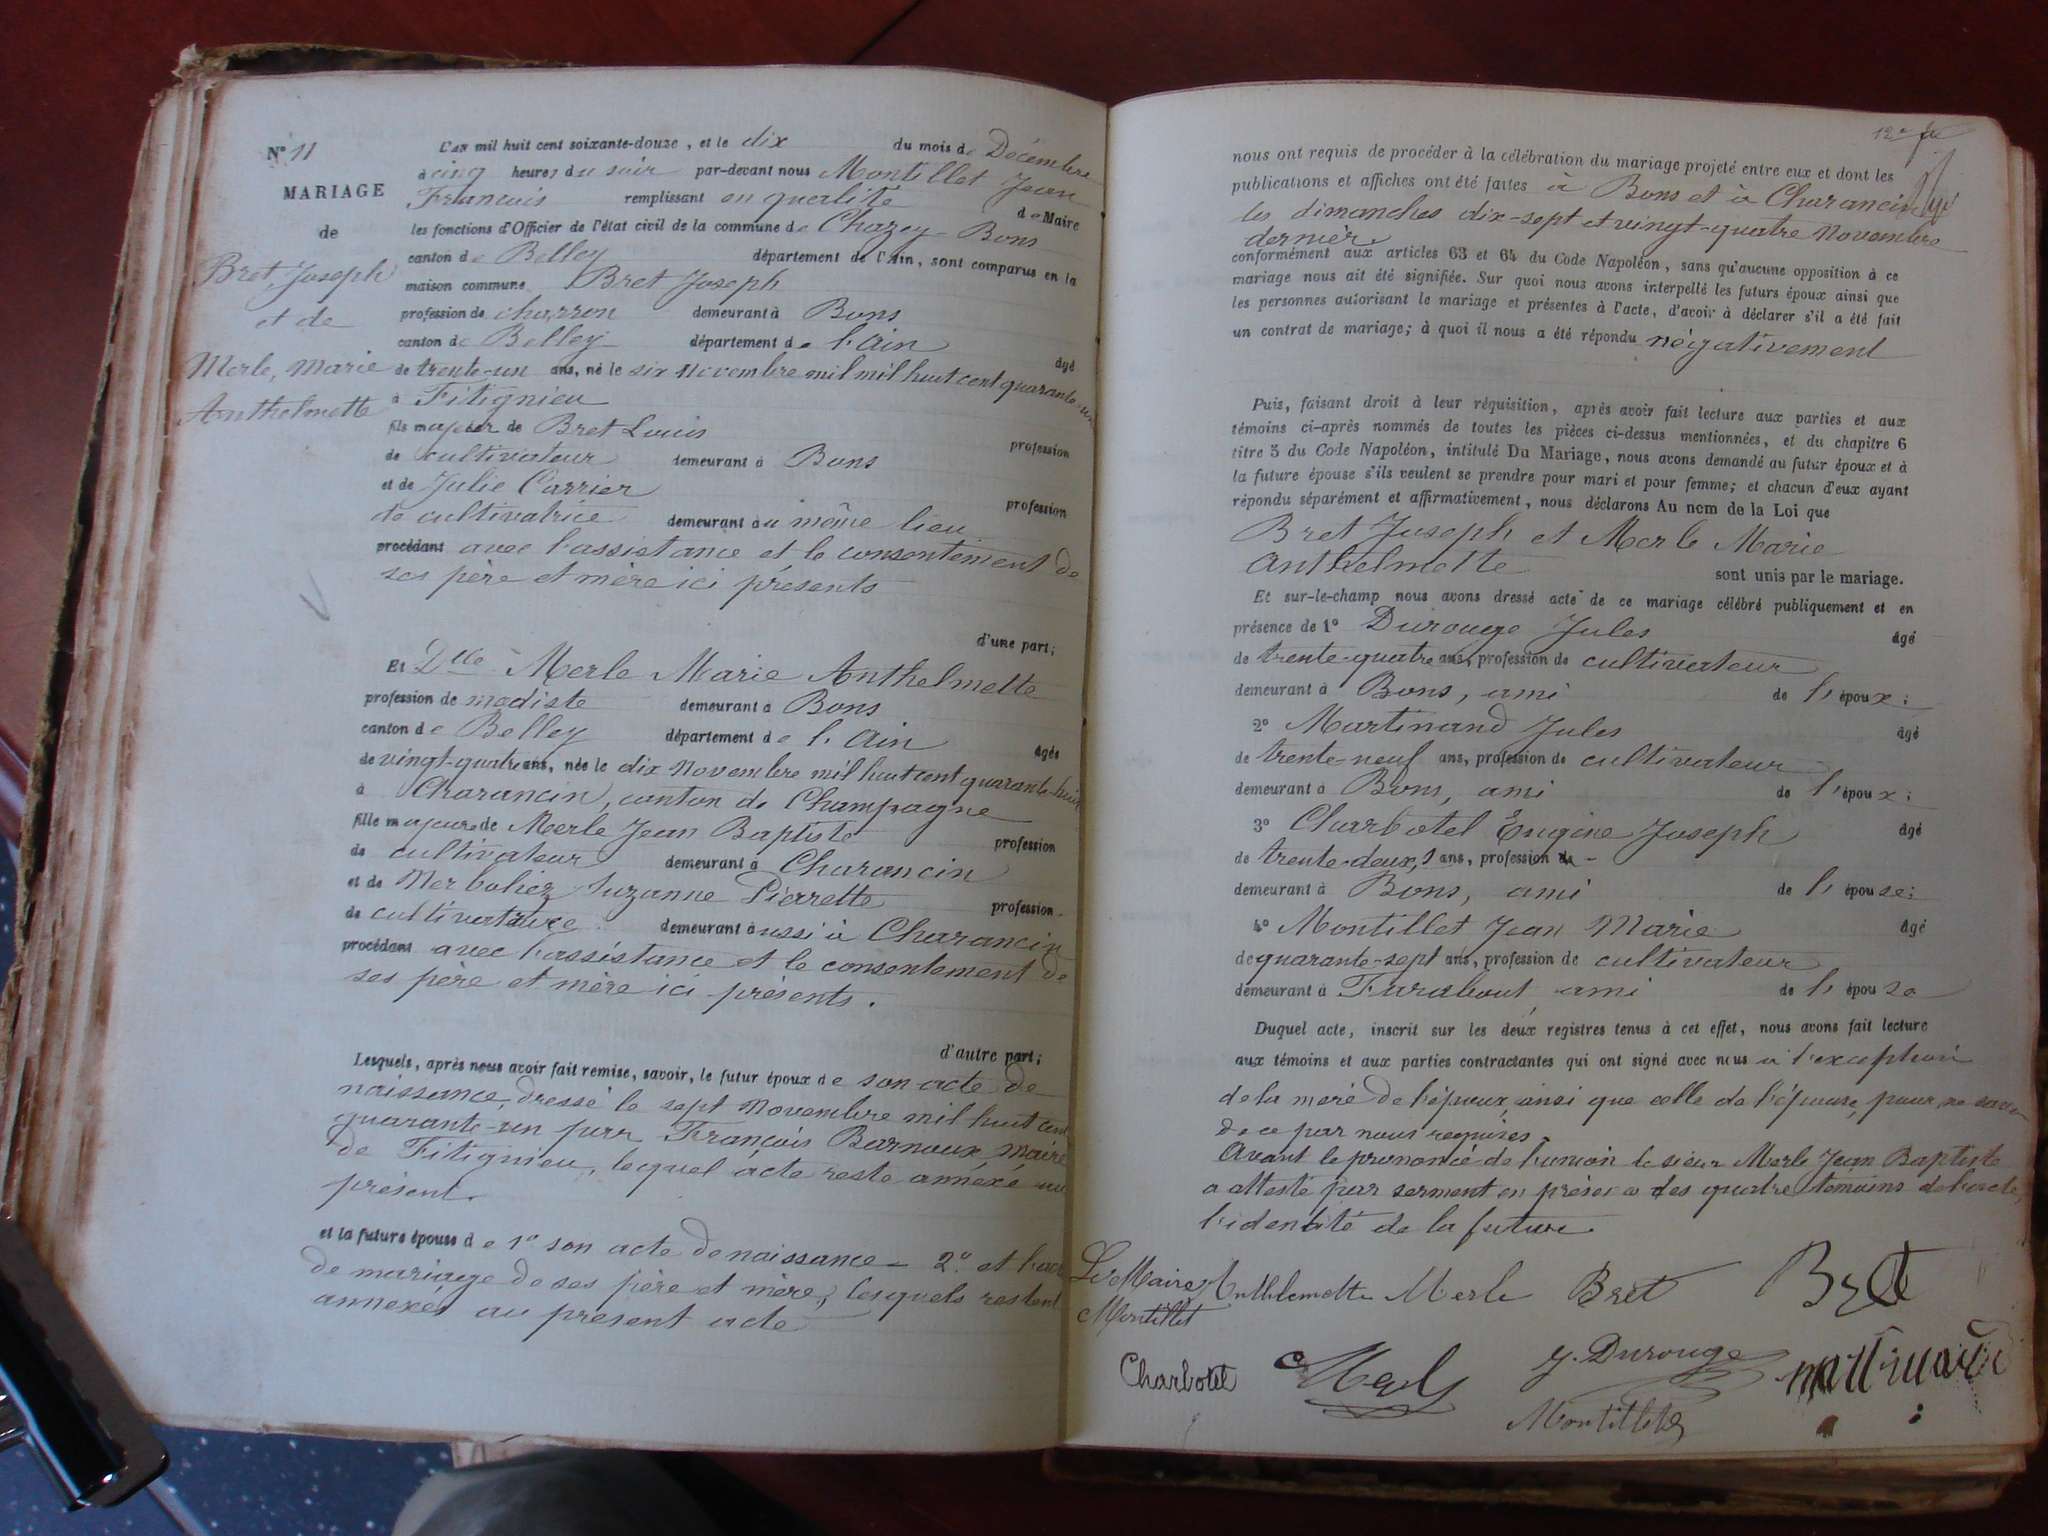 N° 11
MARIAGE
de
Bret, Joseph
et de
Merle, Marie
Anthelmette
L'an mil huit cent soixante-douze, et le dix du mois de Décembre
à cinq heures du soir par-devant nous Montillet Jean
François remplissant en qualité de Maire
les fonctions d'Officier de l'état civil de la commune de Chazey-Bons
canton de Belley département de l'Ain, sont comparus en la
maison commune Bret Joseph
profession de charron demeurant à Bons
canton de Belley département de l'Ain âgé
de trente-un ans, né le six Novembre mil mil huit cent quarante-un
à Fitignieu
fils majeur de Bret Louis profession
de cultivateur demeurant à Bons
et de Julie Carrier profession
de cultivatrice demeurant au même lieu
procédant avec l'assistance et le consentement de
ses père et mère ici présents
d'une part;
Et Dlle Merle Marie Anthelmette
profession de modiste demeurant à Bons
canton de Belley département de l'Ain âgée
de vingt-quatre ans, née le dix Novembre mil huit cent quarante-huit
à Charancin, canton de Champagne
fille majeure de Merle Jean Baptiste profession
de cultivateur demeurant à Charancin
et de Merboliez Suzanne Pierrette profession
de cultivatrice demeurant aussi à Charancin
procédant avec l'assistance et le consentement de
ses père et mère ici présents.
d'autre part;
Lesquels, après nous avoir fait remise, savoir, le futur époux de son acte de
naissance, dressé le sept Novembre mil huit cent
quarante-un par François Barnoux, maire
de Fitignieu, lequel acte reste annéxé au
présent.
et la future épouse de 1° son acte de naissance - 2° et l'acte
de mariage de ses père et mère, lesquels restent
annexés au présent acte
nous ont requis de procéder à la célébration du mariage projeté entre eux et dont les
publications et affiches ont été faites à Bons et à Charancin
les dimanches dix-sept et vingt-quatre Novembre
dernier.
conformément aux articles 63 et 64 du Code Napoléon, sans qu'aucune opposition à ce
mariage nous ait été signifiée. Sur quoi nous avons interpellé les futurs époux ainsi que
les personnes autorisant le mariage et présentes à l'acte, d'avoir à déclarer s'il a été fait
un contrat de mariage; à quoi il nous a été répondu négativement
Puis, faisant droit à leur réquisition, après avoir fait lecture aux parties et aux
témoins ci-après nommés de toutes les pièces ci-dessus mentionnées, et du chapitre 6
titre 5 du Code Napoléon, intitulé Du Mariage, nous avons demandé au futur époux et à
la future épouse s'ils veulent se prendre pour mari et pour femme; et chacun d'eux ayant
répondu séparément et affirmativement, nous déclarons Au nom de la Loi que
Bret Joseph et Merle Marie
Anthelmette sont unis par le mariage.
Et sur-le-champ nous avons dressé acte de ce mariage célébré publiquement et en
présence de 1° Durouge Jules âgé
de trente-quatre ans, profession de cultivateur
demeurant à Bons, ami de l'époux;
2° Martinand Jules âgé
de trente-neuf ans, profession de cultivateur
demeurant à Bons, ami de l'époux;
3° Charbotel Eugène Joseph âgé
de trente-deux, ans, profession de -
demeurant à Bons, ami de l'épouse;
4° Montillet Jean Marie âgé
de quarante-sept ans, profession de cultivateur
demeurant à Farabout ami de l'épouse
Duquel acte, inscrit sur les deux registres tenus à cet effet, nous avons fait lecture
aux témoins et aux parties contractantes qui ont signé avec nous à l'exception
de la mère de l'époux, ainsi que celle de l'épouse, pour ne savoir
de ce par nous requises.
Avant le prononcé de l'union le sieur Merle Jean Baptiste
a attesté par serment en présence des quatre témoins de l'acte,
l'identité de la future.
Le Maire Anthelmette Merle Bret Bret
Montillet
Charbotel Merle J. Durouge Martinand
Montillet